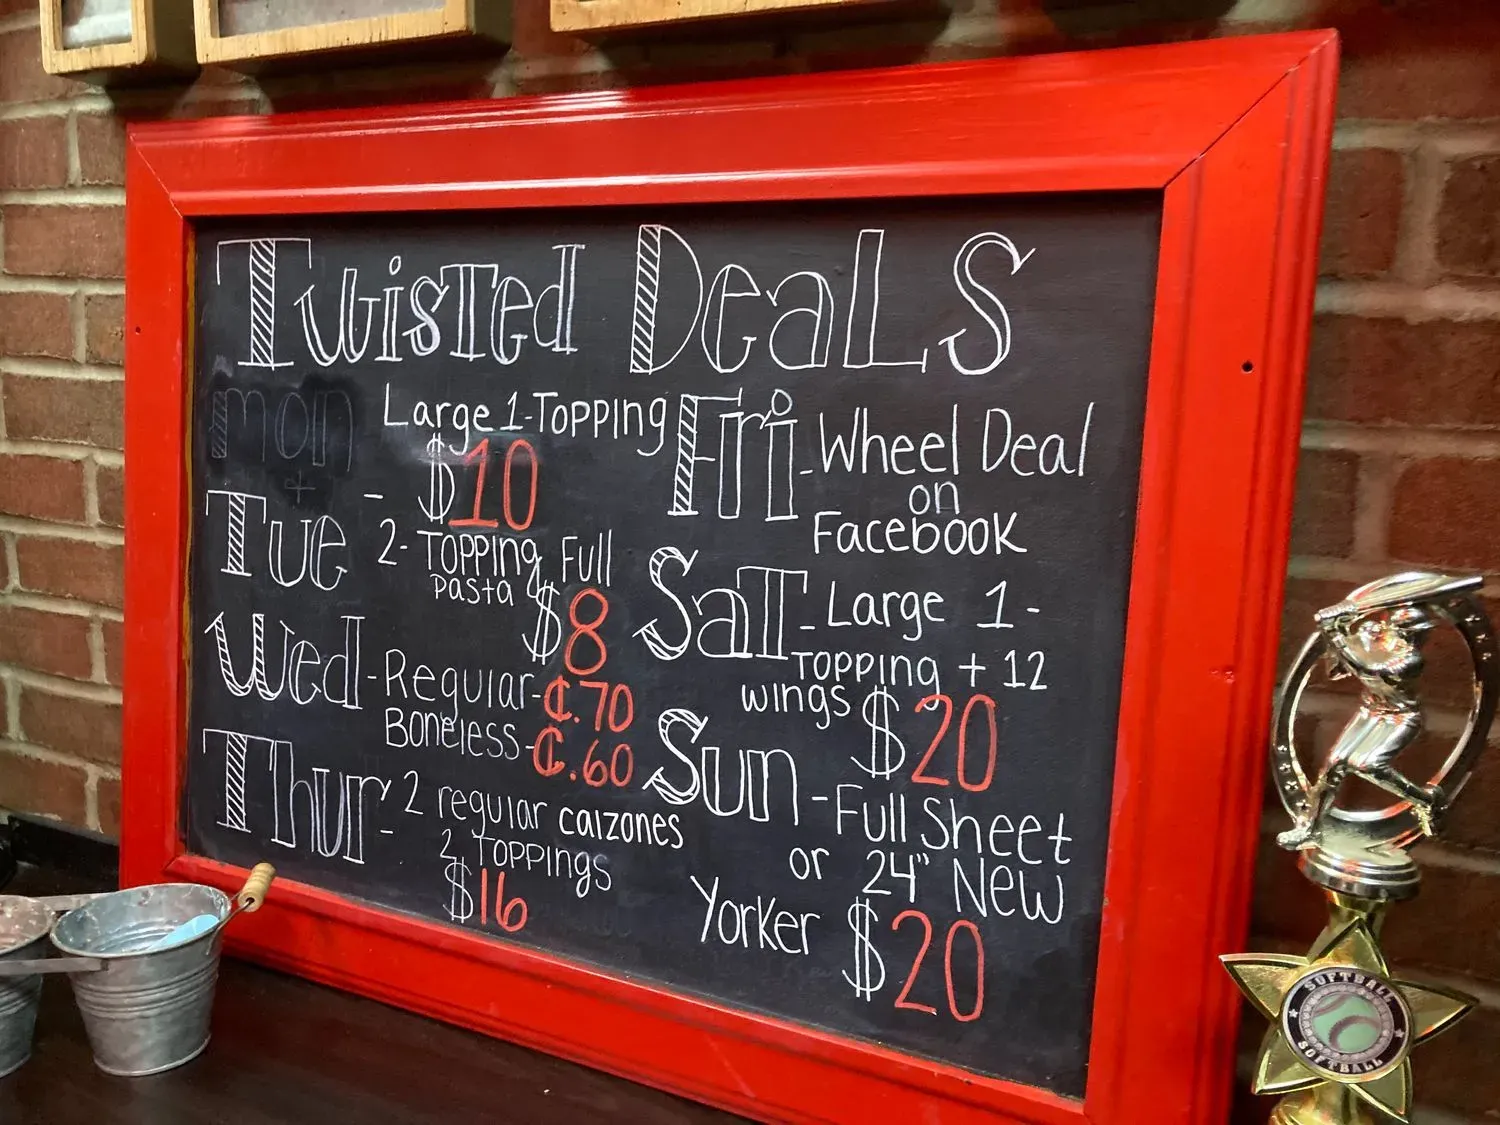 Twisted Deals
Mon
+
Tue -
Large 1-Topping
$10
2- Topping Full
pasta $8
Wed - Regular - ¢.70
Boneless - ¢.60
Thur - 2 regular calzones
2 Toppings
$16
Fri - Wheel Deal
on
Facebook
Sat - Large 1-
Topping + 12
wings $20
Sun - Full Sheet
or 24" New
Yorker $20
SOFTBALL
SOFTBALL